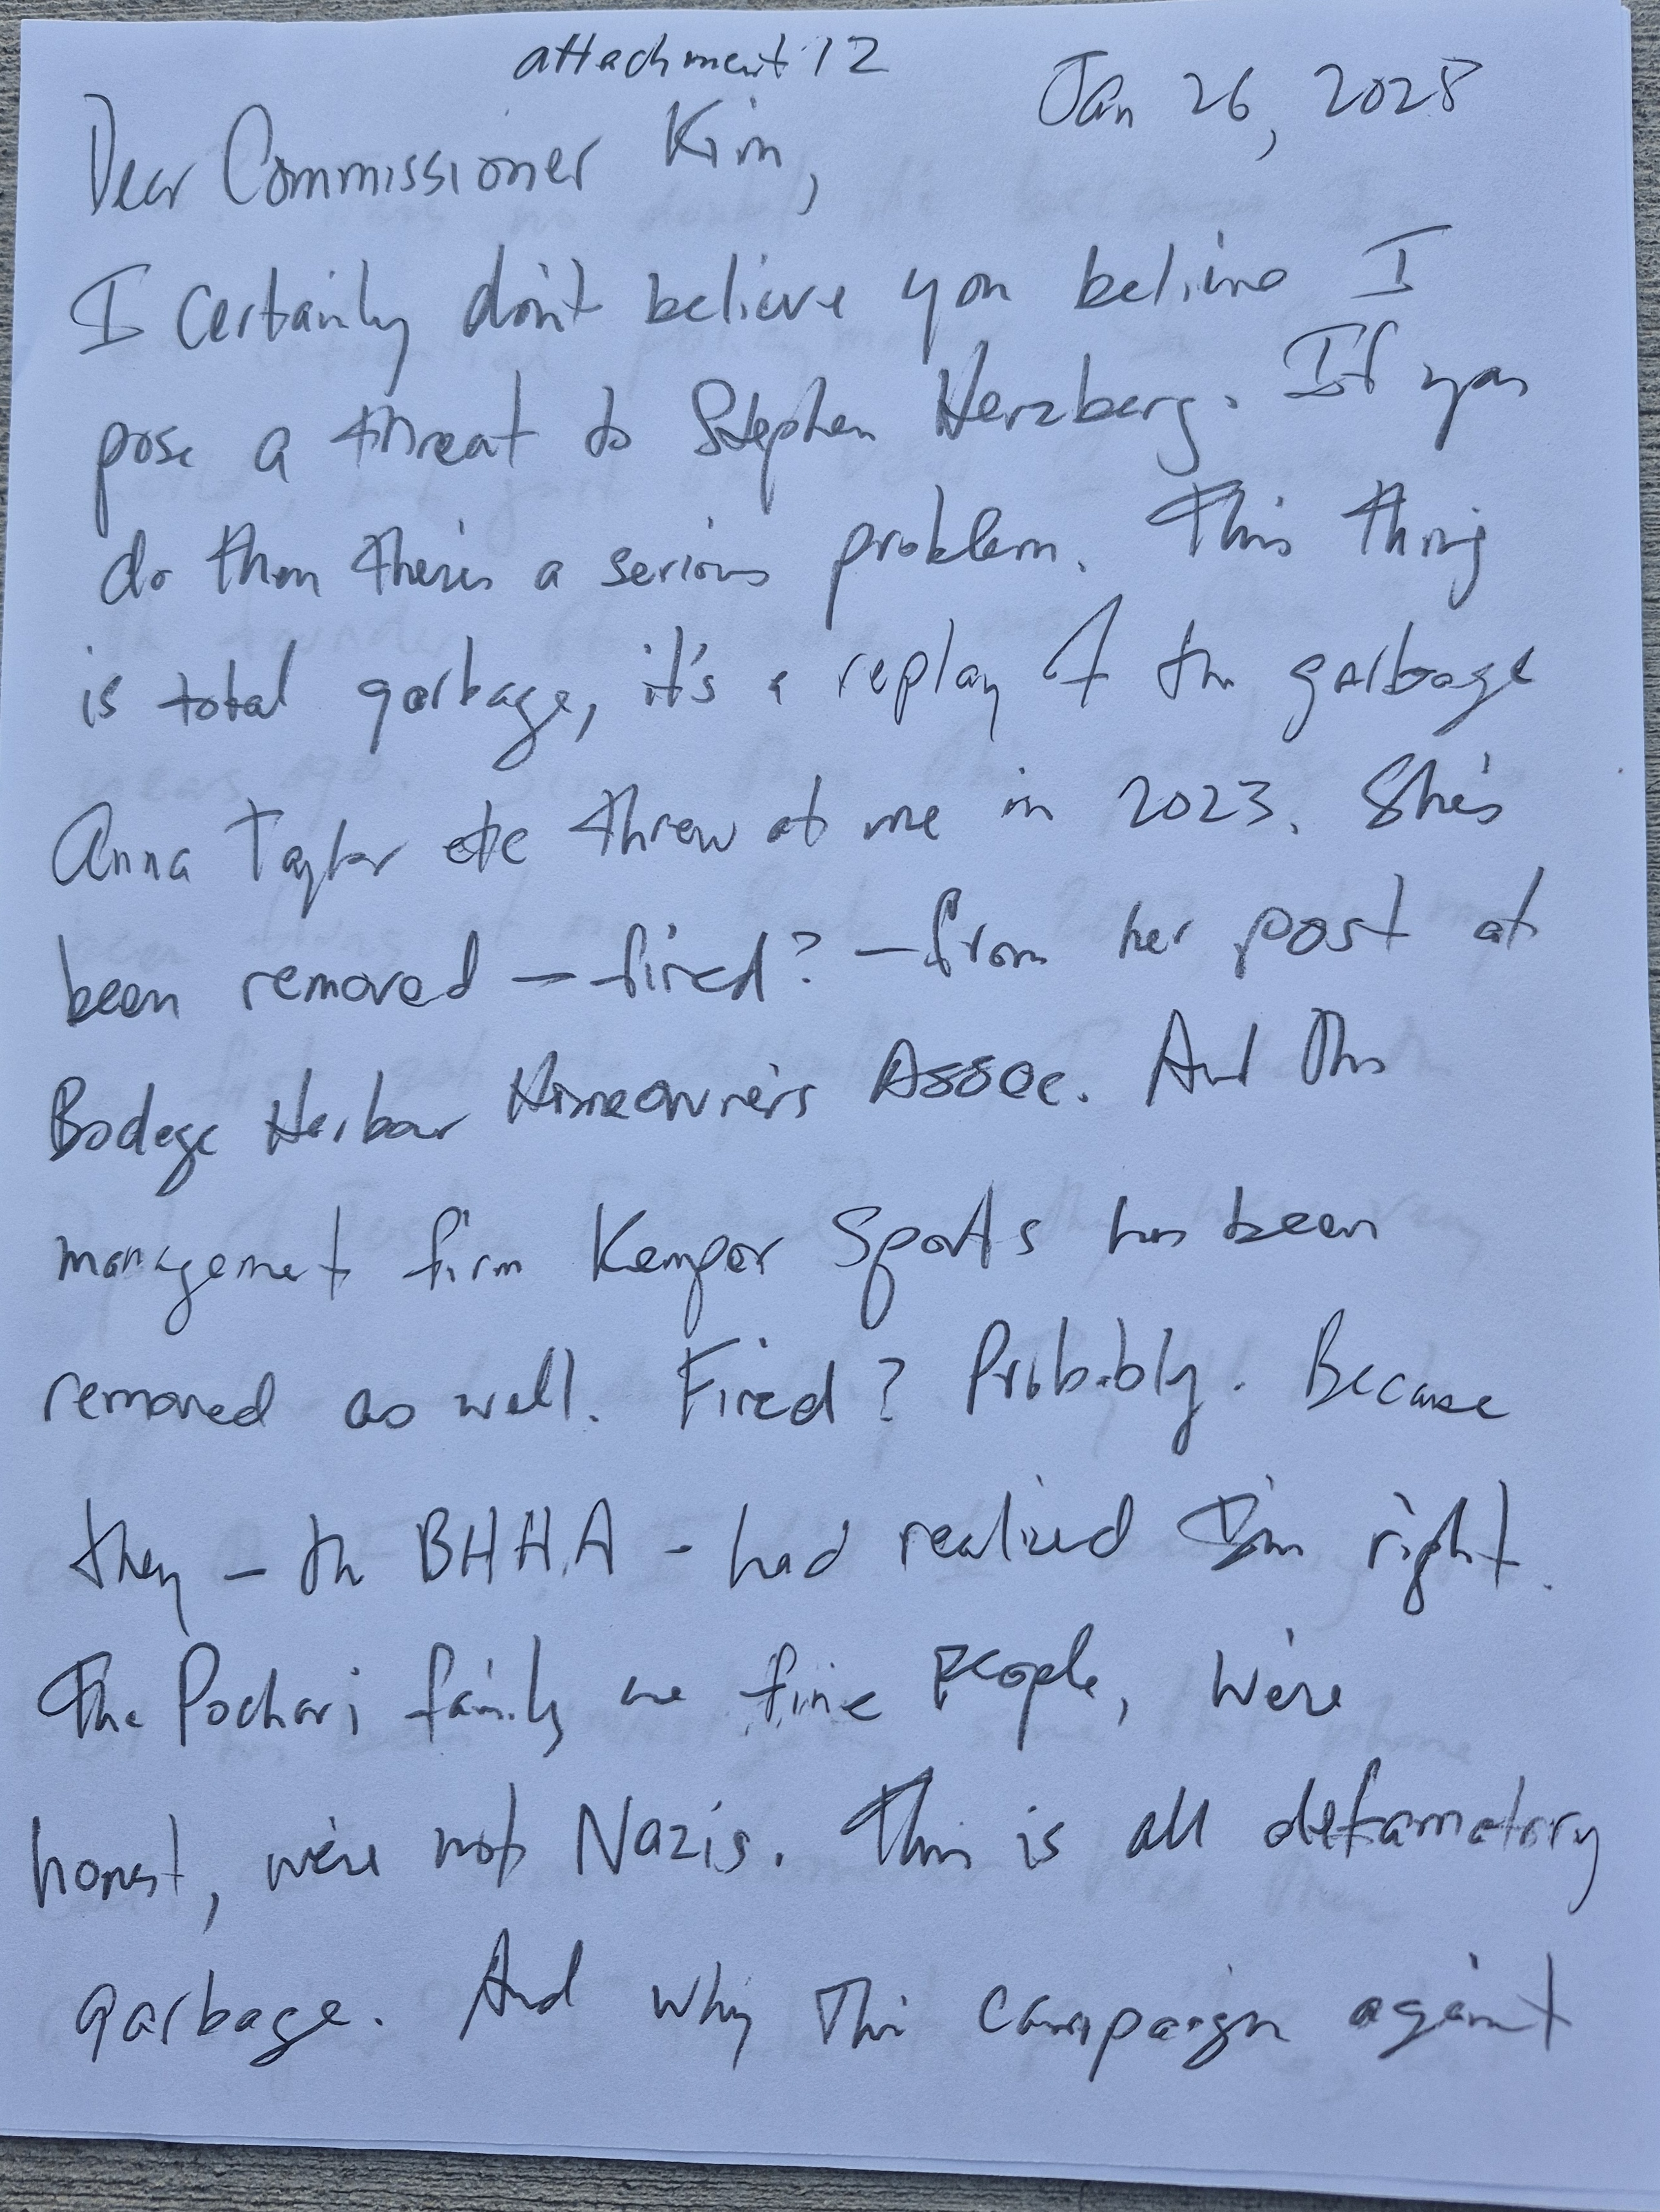 attachment 12
Jan 26, 2028
Dear Commissioner Kim,
I certainly don't believe you believe I
pose a threat to Stephen Herzberg. If you
do then there's a serious problem. This thing
is total garbage, it's a replay of the garbage
Anna Taylor etc threw at me in 2023. She's
been removed — fired? — from her post at
Bodega Harbour Homeowner's Assoc. And this
management firm Kemper Sports has been
removed as well. Fired? Probably. Because
they - the BHHA - had realized I'm right.
The Pochari family are fine people, we're
honest, we're not Nazis. This is all defamatory
garbage. And why this campaign against